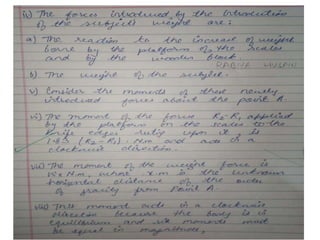 iv) The forces introduced by the introduction
of the subject's weight are:
a) The reaction to the increase of weight
borne by the platform of the scales
and by the wooden block
RABIYA
b) The weight of the subject.
v) Consider the moments of these newly
introduced forces about the point A.
vi) The moment of the force R2-R1 applied
by the platform on the scales to the
knife edges upon it is
(R2-R1) Nm and acts in a
clockwise direction.
vii) The moment of the weight force is
Nm, where 'x' m is the unknown
horizontal distance of the
of gravity from Point A.
viii) This moment acts in a clockwise
direction because the body is in
equilibrium and moments must
be equal in magnitude,